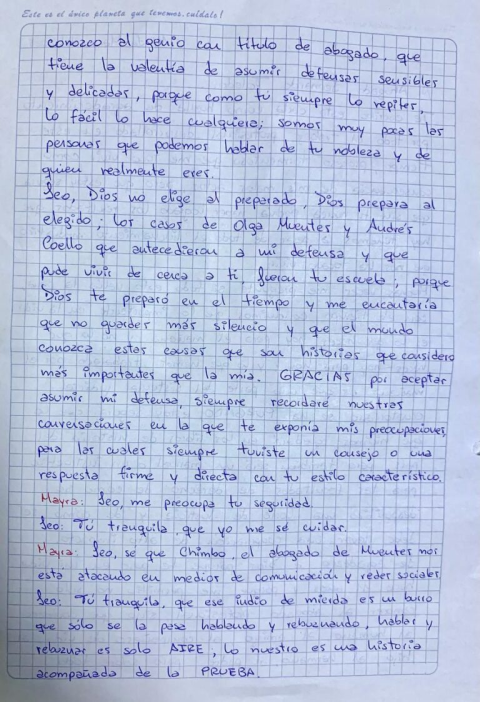 Este es el único planeta que tenemos, cuídalo!
conozco al genio con título de abogado, que
tiene la valentía de asumir defensas sensibles
y delicadas, porque como tú siempre lo repites,
lo fácil lo hace cualquiera; somos muy pocas las
personas que podemos hablar de tu nobleza y de
quien realmente eres.
Leo, Dios no elige al preparado, Dios prepara al
elegido; los casos de Olga Muentes y Andrés
Coello que antecedieron a mi defensa y que
pude vivir de cerca a ti, fueron tu escuela, porque
Dios te preparó en el tiempo y me encantaría
que no guardes más silencio y que el mundo
conozca estas causas que son historias que considero
más importantes que la mía. GRACIAS por aceptar
asumir mi defensa, siempre recordaré nuestras
conversaciones en la que te exponía mis preocupaciones,
para las cuales siempre tuviste un consejo o una
respuesta firme y directa con tu estilo característico.
Mayra: Leo, me preocupa tu seguridad.
Leo: Tú tranquila, que yo me sé cuidar.
Mayra: Leo, se que Chimbo, el abogado de Muentes nos
esta atacando en medios de comunicación y redes sociales
Leo: Tú tranquila, que ese indio de mierda es un burro
que sólo se la pasa hablando y rebuznando, hablar y
rebuznar es solo AIRE, lo nuestro es una historia
acompañada de la PRUEBA.